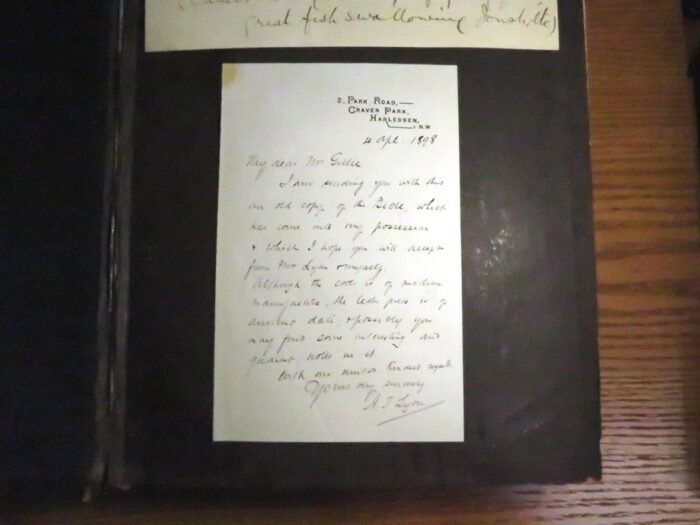 great fish swallowing Jonah, etc)
2, PARK ROAD,
CRAVEN PARK,
HARLESDEN,
N.W
4 Apl. 1898
My dear Mr
I am sending you with this
an old copy of the Bible, which
has come into my possession
& which I hope you will accept
from Mrs Lyon & myself.
Although the is of modern
manufacture, the letter press is of
ancient date, & possibly you
may find some interesting and
quaint notes in it
With our kindest regards
Yours very sincerely
A. J. Lyon